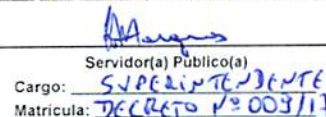 Servidor(a) Público(a)
Cargo: SUPERINTENDENTE
Matrícula: DECRETO Nº 009/17